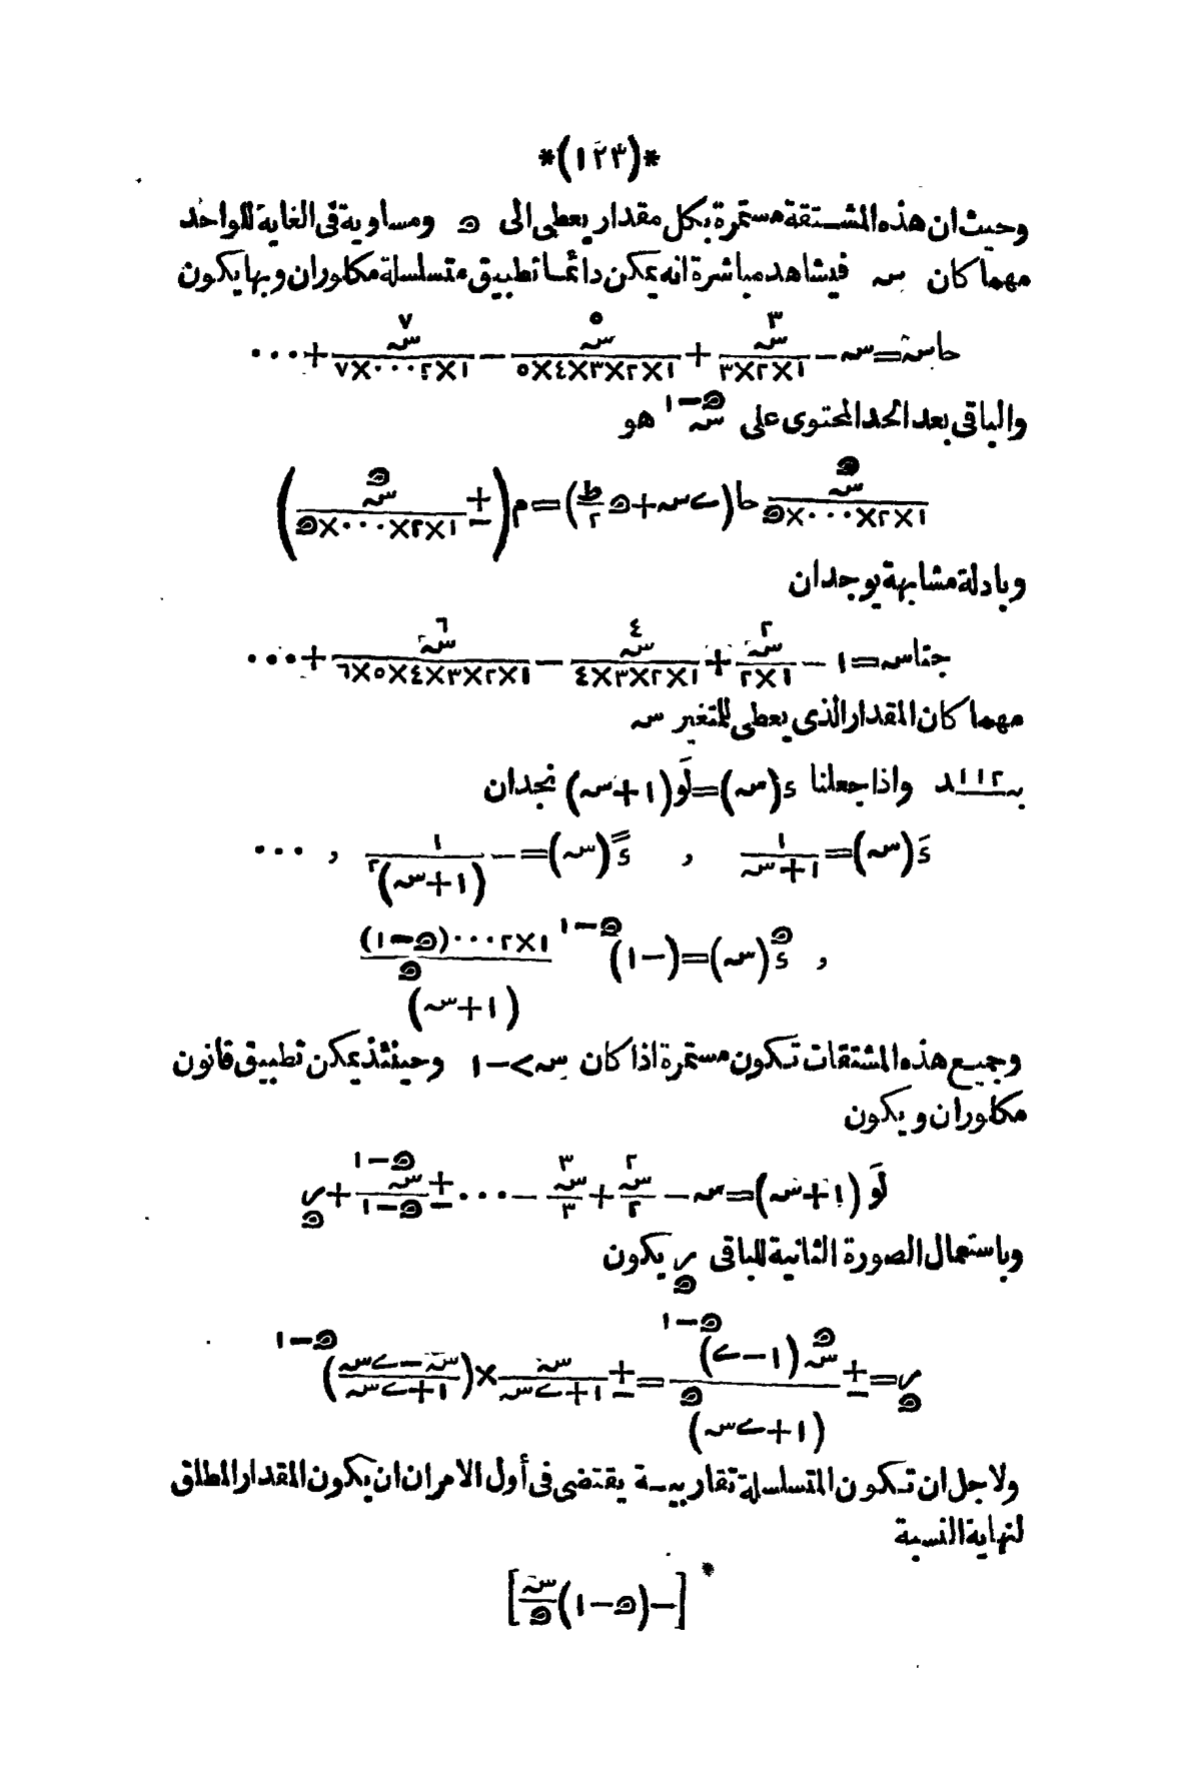 *(١٢٣)*
وحيث ان هذه المشتقة مستمرة بكل مقدار يعطى الى ﻫ ومساوية فى الغاية للواحد
مهما كان س فيشاهد مباشرة انه يمكن دائما تطبيق متسلسلة مكلوران وبها يكون
حاس=س-س^٣/(١×٢×٣)+س^٥/(١×٢×٣×٤×٥)-س^٧/(١×٢···٧)+···
والباقى بعد الحد المحتوى على س^(ﻫ-١) هو
س^ﻫ/(١×٢×···×ﻫ) حا(ے س+ﻫ ط/٢)=م(± س^ﻫ/(١×٢×···×ﻫ))
وبادلة مشابهة يوجد ان
جتاس=١-س^٢/(١×٢)+س^٤/(١×٢×٣×٤)-س^٦/(١×٢×٣×٤×٥×٦)+···
مهما كان المقدار الذى يعطى للتغير س
بـ١١٢ـند واذا جعلنا د(س)=لَو(١+س) نجد ان
دَ(س)=١/(١+س) , دً(س)=-١/(١+س)^٢ , ···
, د^ﻫ(س)=(-١)^(ﻫ-١) (١×٢···(ﻫ-١))/(١+س)^ﻫ
وجميع هذه المشتقات تكون مستمرة اذا كان س>-١ وحينئذ يمكن تطبيق قانون
مكلوران ويكون
لَو(١+س)=س-س^٢/٢+س^٣/٣-···±س^(ﻫ-١)/(ﻫ-١)+ر_ﻫ
وباستعمال الصورة الثانية للباقى ر_ﻫ يكون
ر_ﻫ=± س^ﻫ(١-ے)^(ﻫ-١)/(١+ے س)^ﻫ=± س/(١+ے س)×((س-ے س)/(١+ے س))^(ﻫ-١)
ولاجل ان تكون المتسلسلة تقاربية يقتضى فى أول الامر ان ان يكون المقدار المطلق
لنهاية النسبة
[-(ﻫ-١)س/ﻫ]